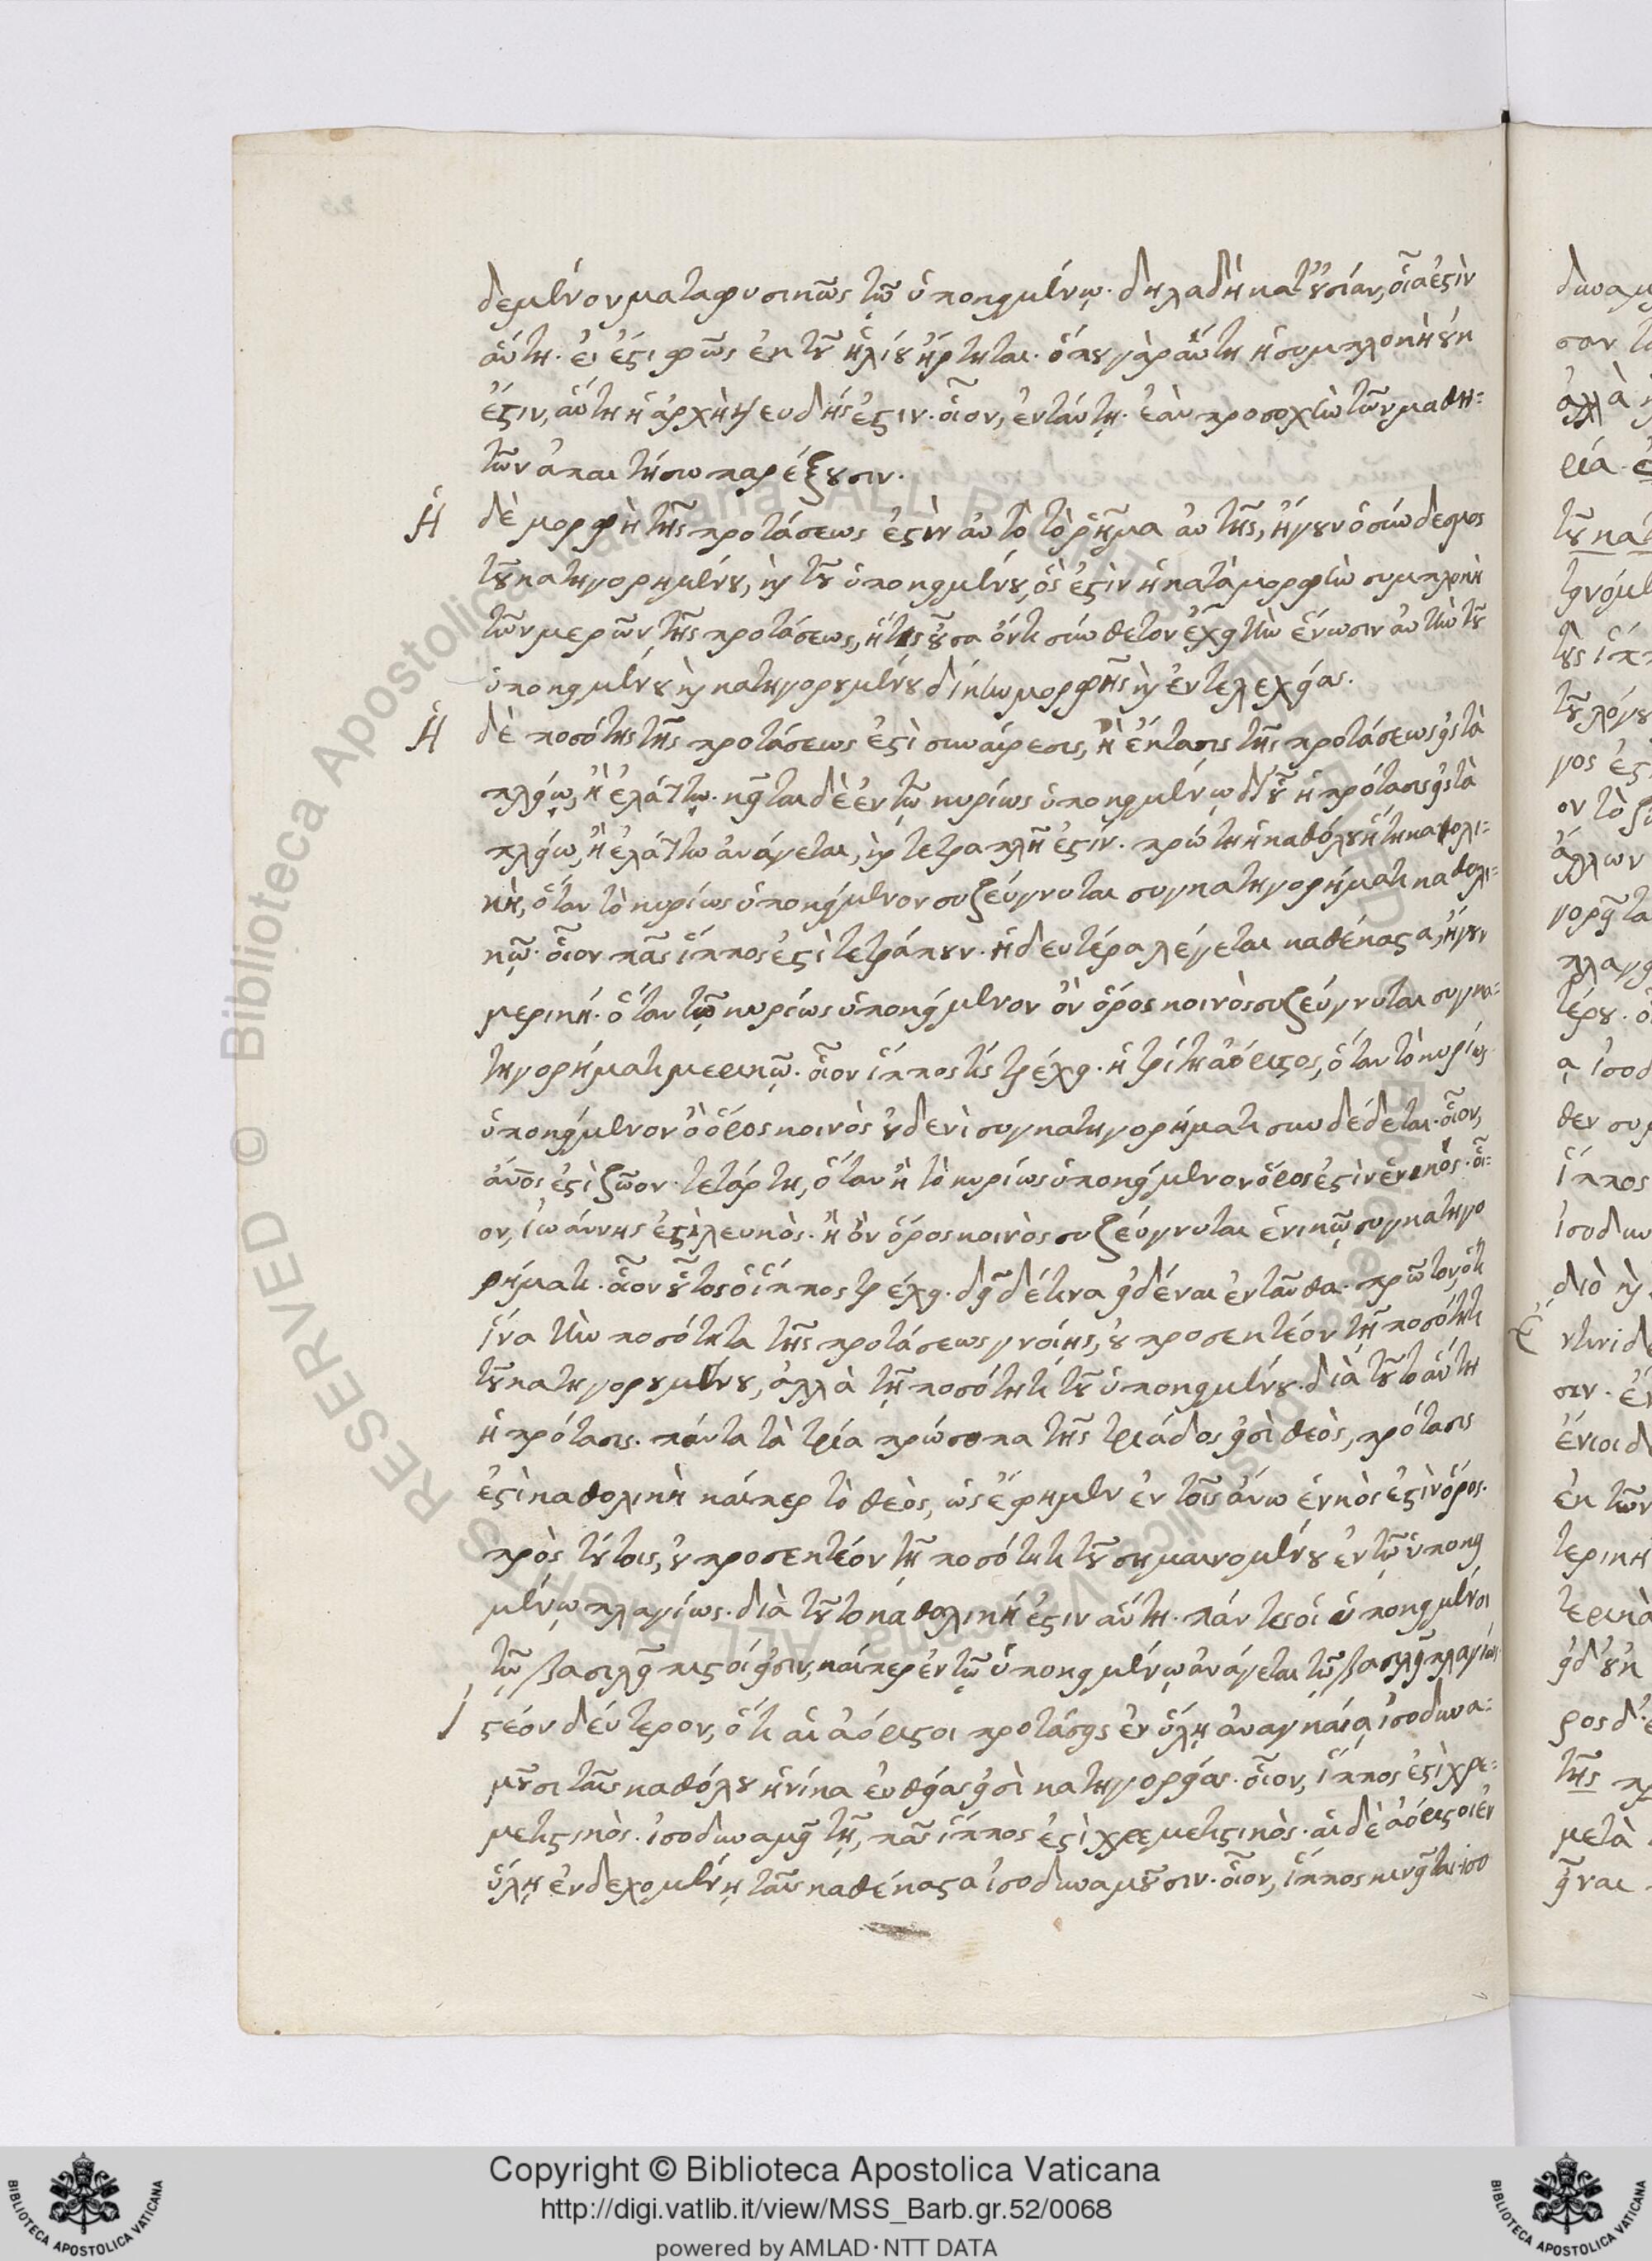 δεμένον καταφυσικῶς τῷ ὑποκειμένῳ. δηλαδὴ κατ' οὐσίαν, οἷα ἐστὶν
αὕτη. εἰ ἔστι φῶς ἐκ τοῦ ἡλίου ἤρτηται. ὅπου γὰρ αὕτη ἡ συμπλοκὴ οὐκ
ἔστιν, αὕτη ἡ ἀρχὴ ψευδής ἐστιν. οἷον, ἐνταύτῃ. ἐὰν προσοχὴν τῶν μαθη=
τῶν ἀπαιτήσω παρέξουσιν.
Ἡ δὲ μορφὴ τῆς προτάσεως ἐστὶν αὐτὸ τὸ ῥῆμα αὐτῆς, ἤγουν ὁ σύνδεσμος
τοῦ κατηγορημένου, καὶ τοῦ ὑποκειμένου, ὅς ἐστὶν ἡ κατὰ μορφὴν συμπλοκὴ
τῶν μερῶν τῆς προτάσεως, ἥτις οὖσα ὄντι σύνθετον ἔχει τὴν ἕνωσιν αὐτὴν τοῦ
ὑποκειμένου καὶ κατηγορουμένου δίκην μορφῆς καὶ ἐντελεχείας.
Ἡ δὲ ποσότης τῆς προτάσεως ἐστὶ συναίρεσις, ἢ ἔκτασις τῆς προτάσεως εἰς τὰ
πλείῳ, ἢ ἐλάττῳ. κεῖται δὲ ἐν τῷ κυρίως ὑποκειμένῳ δι' οὗ ἡ πρότασις εἰς τὰ
πλείω, ἢ ἐλάττω ἀνάγεται, καὶ τετραπλῆ ἐστίν. πρώτη ἡ καθόλου ἤτη καθολι=
κὴ, ὅταν τὸ κυρίως ὑποκείμενον συζεύγνυται συγκατηγορήματι καθολι=
κῷ. οἷον πᾶς ἵππος ἐστὶ τετράπουν. ἡ δευτέρα λέγεται καθέκαστα, ἤγουν
μερική. ὅταν τῷ κυρίως ὑποκείμενον ὂν ὅρος κοινὸς συζεύγνυται συγκα=
τηγορήματι μερικῷ. οἷον ἵππος τὶς τρέχει. ἡ τρίτη ἀόριστος, ὅταν τὸ κυρίως
ὑποκείμενον ὂ ὅρος κοινὸς οὐδενὶ συγκατηγορήματι συνδέδεται. οἷον,
ἄνος ἐστὶ ζῶον. τετάρτη, ὅταν ἢ τὸ κυρίως ὑποκείμενον ὅρος ἐστὶν ἑνικός. οἷ=
ον, ἰωάννης ἐστὶ λευκὸς. ἢ ὂν ὅρος κοινὸς συζεύγνυται ἑνικῷ συγκατηγο
ρήματι. οἷον οὗτος ὁ ἵππος τρέχει. δεῖ δέ τινα εἰδέναι ἐνταῦθα. πρῶτον, ὅτι
ἵνα τὴν ποσότητα τῆς προτάσεως γνοίης, οὐ προσεκτέον τῇ ποσότητι
τοῦ κατηγορουμένου, ἀλλὰ τῇ ποσότητι τοῦ ὑποκειμένου. διὰ τοῦτο αὕτη
ἡ πρότασις. πάντα τὰ τρία πρώσοπα τῆς τριάδος εἰσὶ θεὸς, πρότασις
ἐστὶ καθολικὴ καίπερ τὸ θεὸς, ὡς ἔφημεν ἐν τοῖς ἄνω ἑνικὸς ἐστὶν ὅρος.
πρὸς τούτοις, οὐ προσεκτέον τῇ ποσότητι τοῦ σημαινομένου ἐν τῷ ὑποκει
μένῳ πλαγίως. διὰ τοῦτο καθολικὴ ἐστιν αὕτη. πάντες οἱ ὑποκειμένοι
τῷ βασιλεῖ πιστοί εἰσιν, καίπερ ἐν τῷ ὑποκειμένῳ ἀνάγεται τῷ βασιλεῖ πλαγίως.
Ἰστέον δεύτερον, ὅτι αἱ ἀόριστοι προτάσεις ἐν ὕλῃ ἀναγκαίᾳ ἰσοδυνα=
μοῦσι ταῖς καθόλου ἡνίκα εὐθείας εἰσὶ κατηγορείας. οἷον, ἵππος ἐστὶ χρε=
μετιστικὸς. ἰσοδυναμεῖ τῇ, πᾶς ἵππος ἐστὶ χρεμετιστικὸς. αἱ δὲ ἀόριστοι ἐν
ὕλῃ ἐνδεχομένῃ ταῖς καθέκαστα ἰσοδυναμοῦσιν. οἷον, ἵππος κινεῖται. ἰσο
Copyright © Biblioteca Apostolica Vaticana
http://digi.vatlib.it/view/MSS_Barb.gr.52/0068
powered by AMLAD·NTT DATA